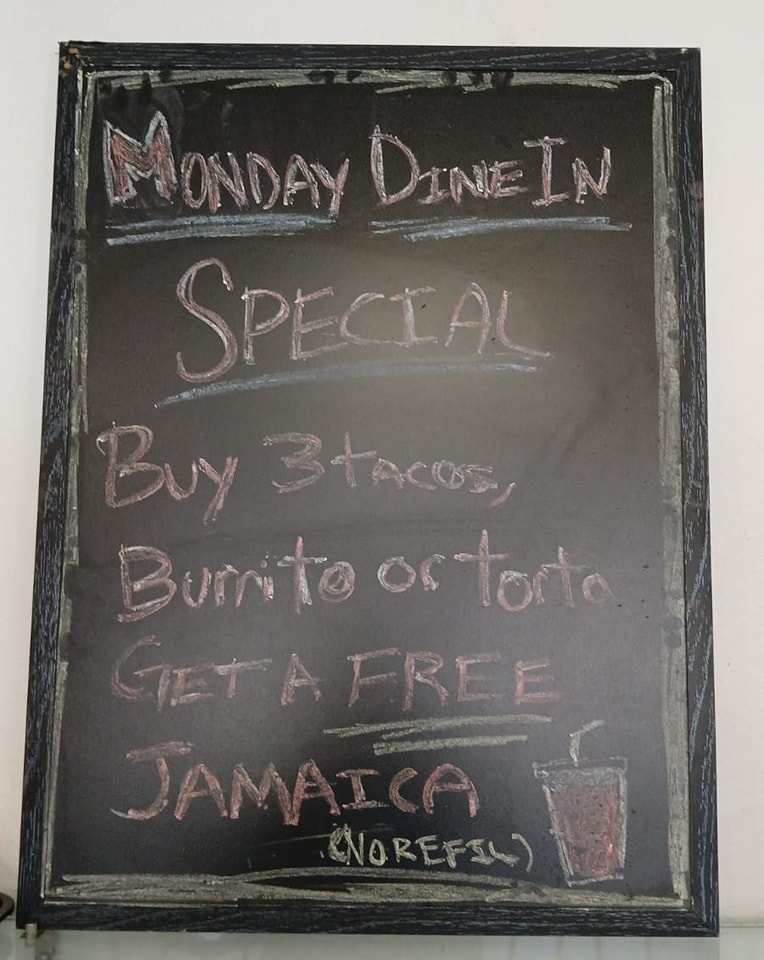 MONDAY DINE IN
SPECIAL
BUY 3 tacos,
Burrito or torta
GET A FREE
JAMAICA
(NO REFIL)